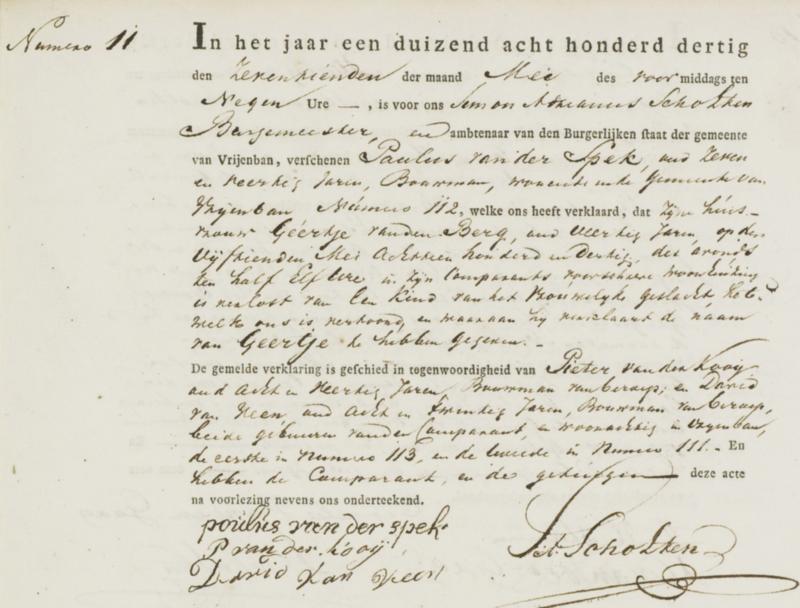 Numero 11
In het jaar een duizend acht honderd dertig
den Zeventienden der maand Mei des voor middags ten
Negen Ure —, is voor ons Simon Adrianus Scholten
Burgemeester, en ambtenaar van den Burgerlijken staat der gemeente
van Vrijenban, verschenen Paulus van der Spek, oud Zeven
en veertig Jaren, Bouwman, wonende in de Gemeente van
Vrijenban Número 112, welke ons heeft verklaard, dat zijn huis-
vrouw Geertje vanden Berg, oud veertig Jaren, op den
Vijftienden Mei achttien honderd en dertig, des avonds
ten half Elf Ure in zijn Comparants voorschreve woonhuizing
is verlost van Een Kind van het Vrouwelijk geslacht, het-
welk ons is vertoond, en waaraan hij verklaart de naam
van Geertje te hebben gegeven. -
De gemelde verklaring is geschied in tegenwoordigheid van Pieter van der Kooij
oud acht en Veertig Jaren, Bouwman van beroep; en David
van Veen oud acht en twintig Jaren, Bouwman van beroep,
beide gebuuren vanden Comparant, en woonachtig in Vrijenban,
de eerste in Numero 113, en de tweede in Numero 111. - En
hebben de Comparant, en de getuigen deze acte
na voorlezing nevens ons onderteekend.
poulus van der spek
P van der kooij
David van Veen
Scholten